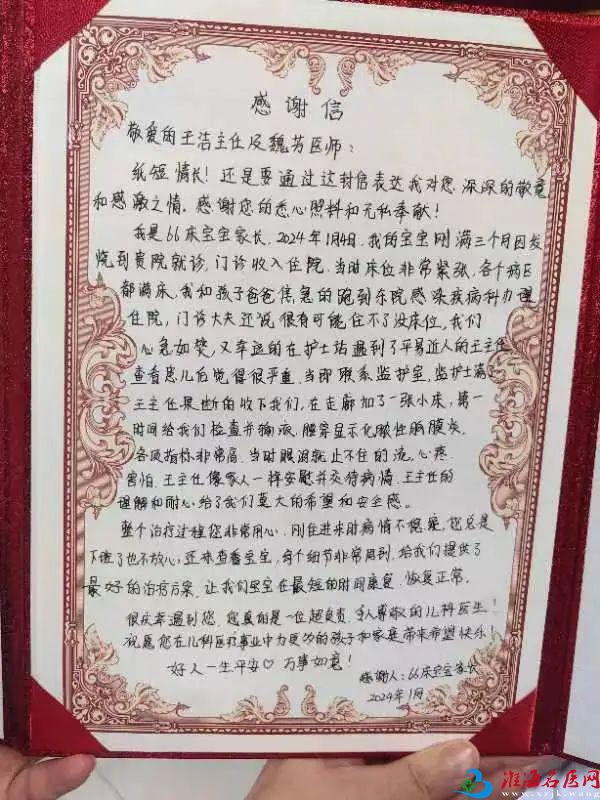 感谢信
敬爱的王洁主任及魏芳医师：
纸短情长！还是要通过这封信表达我对您深深的敬意
和感激之情。感谢您的悉心照料和无私奉献！
我是66床宝宝家长，2024年1月4日，我的宝宝刚满三个月因发
烧到贵院就诊，门诊收入住院，当时床位非常紧张，各个病区
都满床，我和孩子爸爸焦急的跑到东院感染疾病科办理
住院，门诊大夫还说很有可能住不了没床位，我们
心急如焚，又幸运的在护士站遇到了平易近人的王主任
查看患儿后觉得很严重，当即联系监护室，监护士满了
王主任果断的收下我们，在走廊加了一张小床，第一
时间给我们检查并输液，腰穿显示化脓性脑膜炎。
各项指标非常高，当时眼泪就止不住的流，心疼
害怕，王主任像家人一样安慰并交待病情，王主任的
理解和耐心给了我们莫大的希望和安全感。
整个治疗过程您非常用心，刚住进来时病情不稳定，您总是
下班了也不放心，还来查看宝宝，每个细节非常周到，给我们提供了
最好的治疗方案，让我们宝宝在最短的时间康复，恢复正常。
很庆幸遇到您，您真的是一位超负责，令人尊敬的儿科医生！
祝愿您在儿科医疗事业中为更多的孩子和家庭带来希望快乐！
好人一生平安♡ 万事如意！
感谢人：66床宝宝家长
2024年1月
淮海名医网
www.xzjk.wang